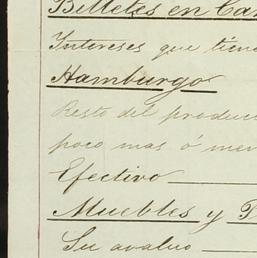 Billetes en Car
Intereses que tiene
Hamburgo
Resto del produc
poco mas ó men
Efectivo
Muebles y
Su avaluo